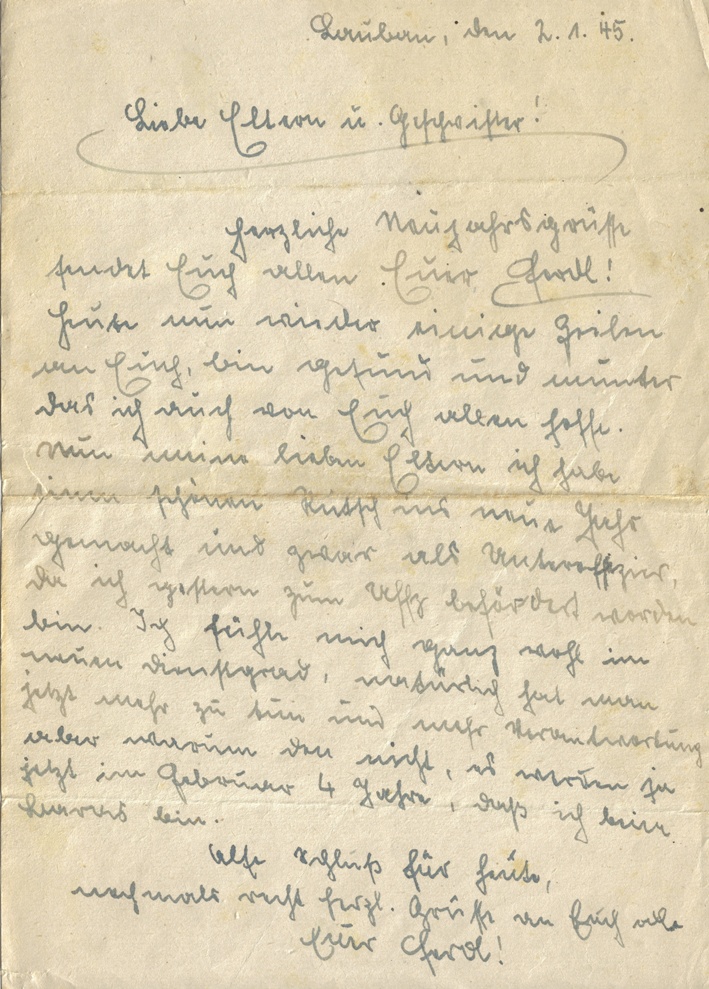 Lauban, den 2.1.45.
Liebe Eltern u. Geschwister!
Herzliche Neujahrsgrüsse
sendet Euch allen Euer Ferdl!
Heute nun wieder einige Zeilen
an Euch, bin gesund und munter
das ich auch von Euch allen hoffe.
Nun meine lieben Eltern ich habe
einen schönen Rutsch ins neue Jahr
gemacht und zwar als Unteroffizier,
da ich gestern zum Uffz befördert worden
bin. Ich fühle mich ganz wohl im
neuen Dienstgrad, natürlich hat man
jetzt mehr zu tun und mehr Verantwortung
aber warum den nicht, es werden ja
jetzt im Februar 4 Jahre, daß ich beim
bin.
Also Schluß für heute,
nochmals recht herzl. Grüsse an Euch alle
Euer Ferdl!